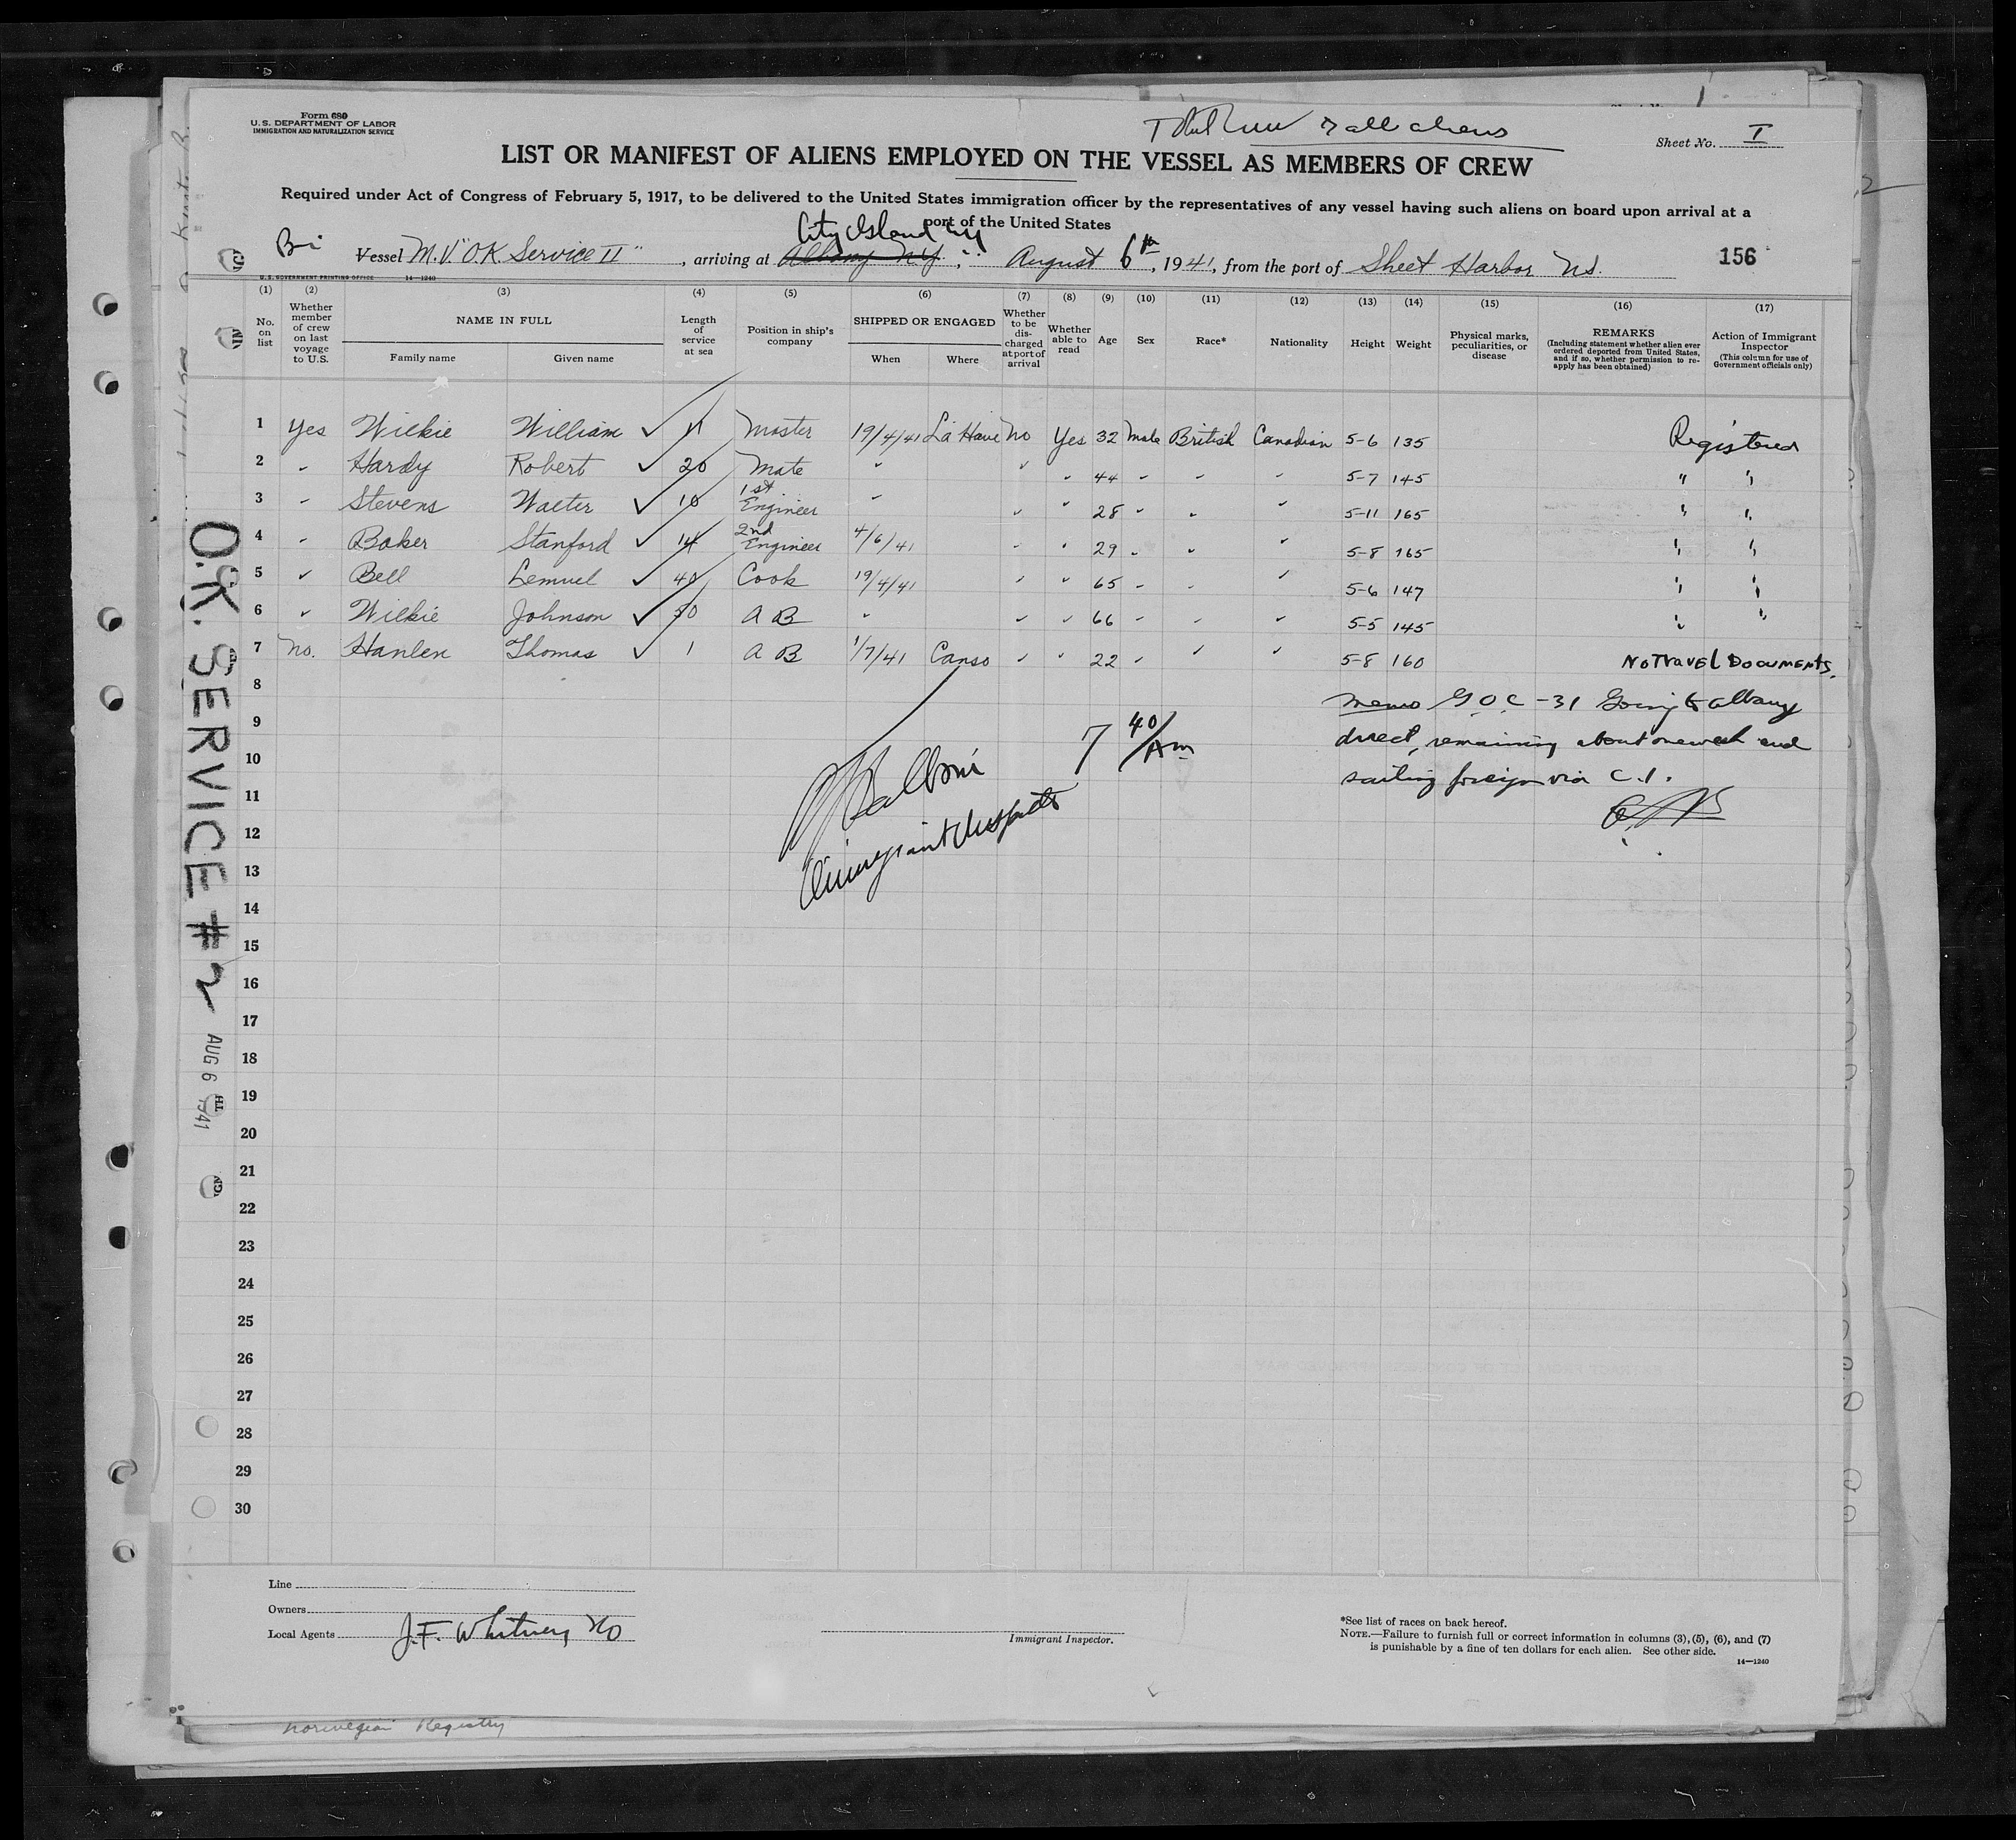 Form 680
U.S. DEPARTMENT OF LABOR
IMMIGRATION AND NATURALIZATION SERVICE
7 all aliens
Sheet No. I
LIST OR MANIFEST OF ALIENS EMPLOYED ON THE VESSEL AS MEMBERS OF CREW
Required under Act of Congress of February 5, 1917, to be delivered to the United States immigration officer by the representatives of any vessel having such aliens on board upon arrival at a
port of the United States
City Island NY
Br Vessel M.V. "O.K. Service II", arriving at Albany N.Y. August 6th, 1941, from the port of Sheet Harbor N.S. 156
U.S. GOVERNMENT PRINTING OFFICE 14—1240
(1) (2) (3) (4) (5) (6) (7) (8) (9) (10) (11) (12) (13) (14) (15) (16) (17)
No. on list
Whether member of crew on last voyage to U.S.
NAME IN FULL
Family name
Given name
Length of service at sea
Position in ship's company
SHIPPED OR ENGAGED
When
Where
Whether to be discharged at port of arrival
Whether able to read
Age
Sex
Race*
Nationality
Height
Weight
Physical marks, peculiarities, or disease
REMARKS
(Including statement whether alien ever ordered deported from United States, and if so, whether permission to reapply has been obtained)
Action of Immigrant Inspector
(This column for use of Government officials only)
1 Yes Wilkie William ✓ 11 Master 19/4/41 La Have No Yes 32 Male British Canadian 5-6 135 Registered
2 " Hardy Robert ✓ 20 Mate " " " 44 " " " 5-7 145 " "
3 " Stevens Walter ✓ 10 1st Engineer " " " 28 " " " 5-11 165 " "
4 " Baker Stanford ✓ 14 2nd Engineer 4/6/41 " " 29 " " " 5-8 165 " "
5 " Bell Lemuel ✓ 40 Cook 19/4/41 " " 65 " " " 5-6 147 " "
6 " Wilkie Johnson ✓ 50 A B " " " 66 " " " 5-5 145 " "
7 No. Hanlen Thomas ✓ 1 A B 1/7/41 Canso " " 22 " " " 5-8 160 No Travel Documents.
8
9
10
11
12
13
14
15
16
17
18
19
20
21
22
23
24
25
26
27
28
29
30
Memo G.O.C-31 Going to Albany
direct, remaining about one week and
sailing foreign via C.I.
7 40/Am
Immigrant Inspector
O.K. SERVICE #2
AUG 6 1941
Line
Owners
Local Agents J.F. Whitney Co
Immigrant Inspector.
*See list of races on back hereof.
NOTE.—Failure to furnish full or correct information in columns (3), (5), (6), and (7)
is punishable by a fine of ten dollars for each alien. See other side.
14—1240
Norwegian Registry